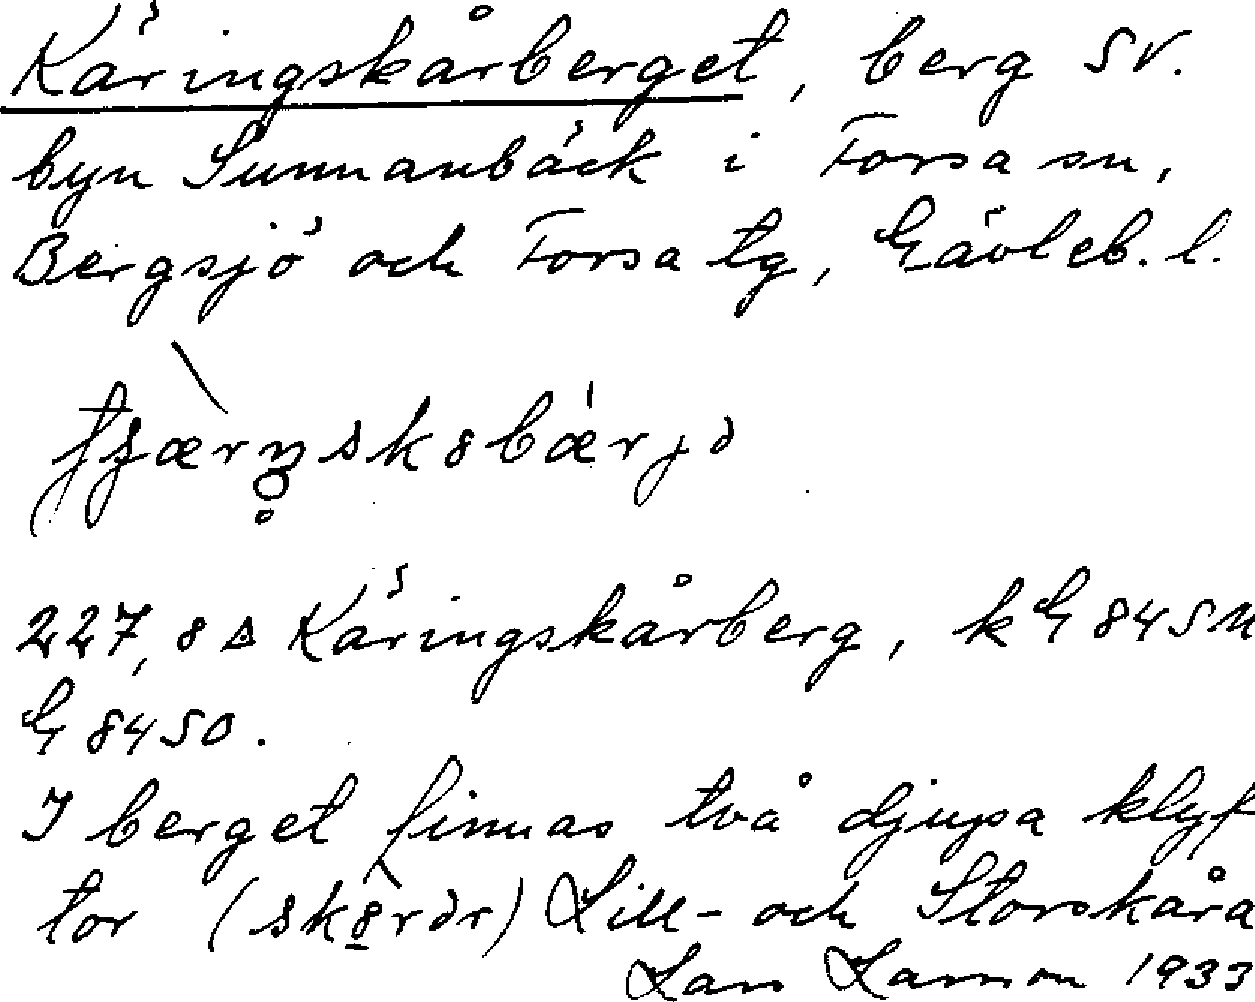 Käringskårberget, berg SV.
byn Sunnanbäck i Forsa sn,
Bergsjö och Forsa tg, Gävleb. l.
227,8 △ Käringskårberg, kG 84 SM
G 84 SO.
I berget finnas två djupa klyf
tor (skȯrər) Lill- och Storskåra
Lars Larsson 1933